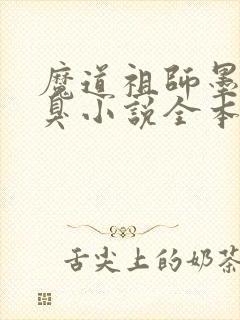 魔道祖師墨
臭小説全本
舌尖上的奶茶